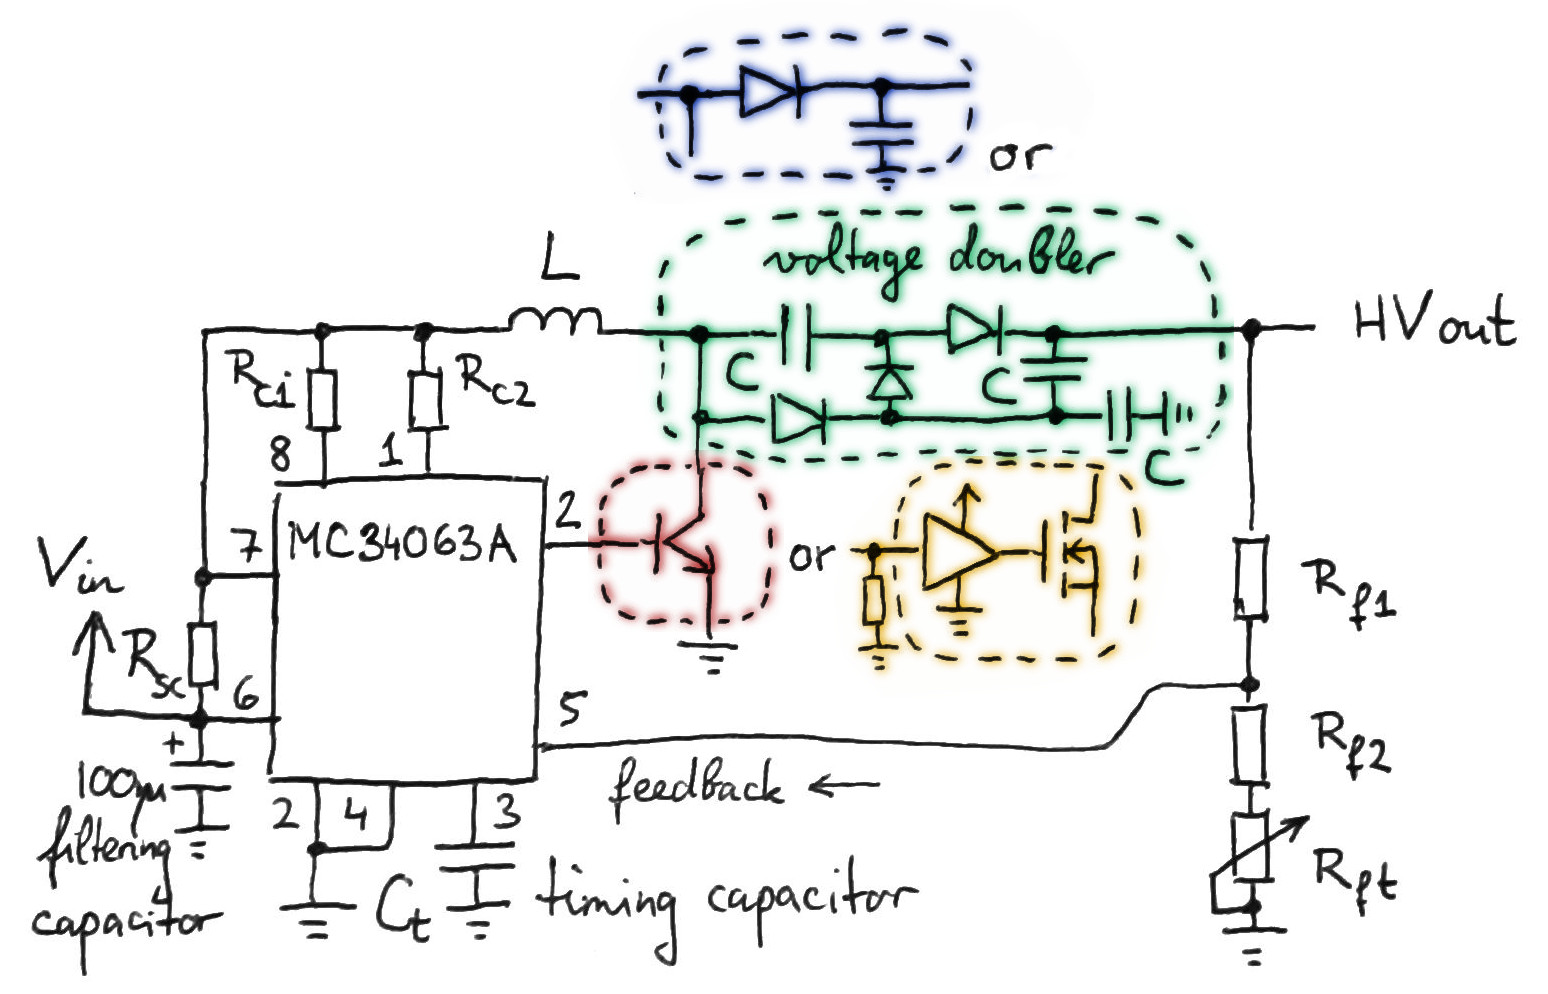 or
voltage doubler
L
HVout
Rc1
Rc2
C
C
C
8
1
7
MC34063A
2
or
Vin
Rsc
6
5
Rf1
+
100µ
filtering
capacitor
feedback ←
Rf2
2
4
3
Ct
timing capacitor
Rft